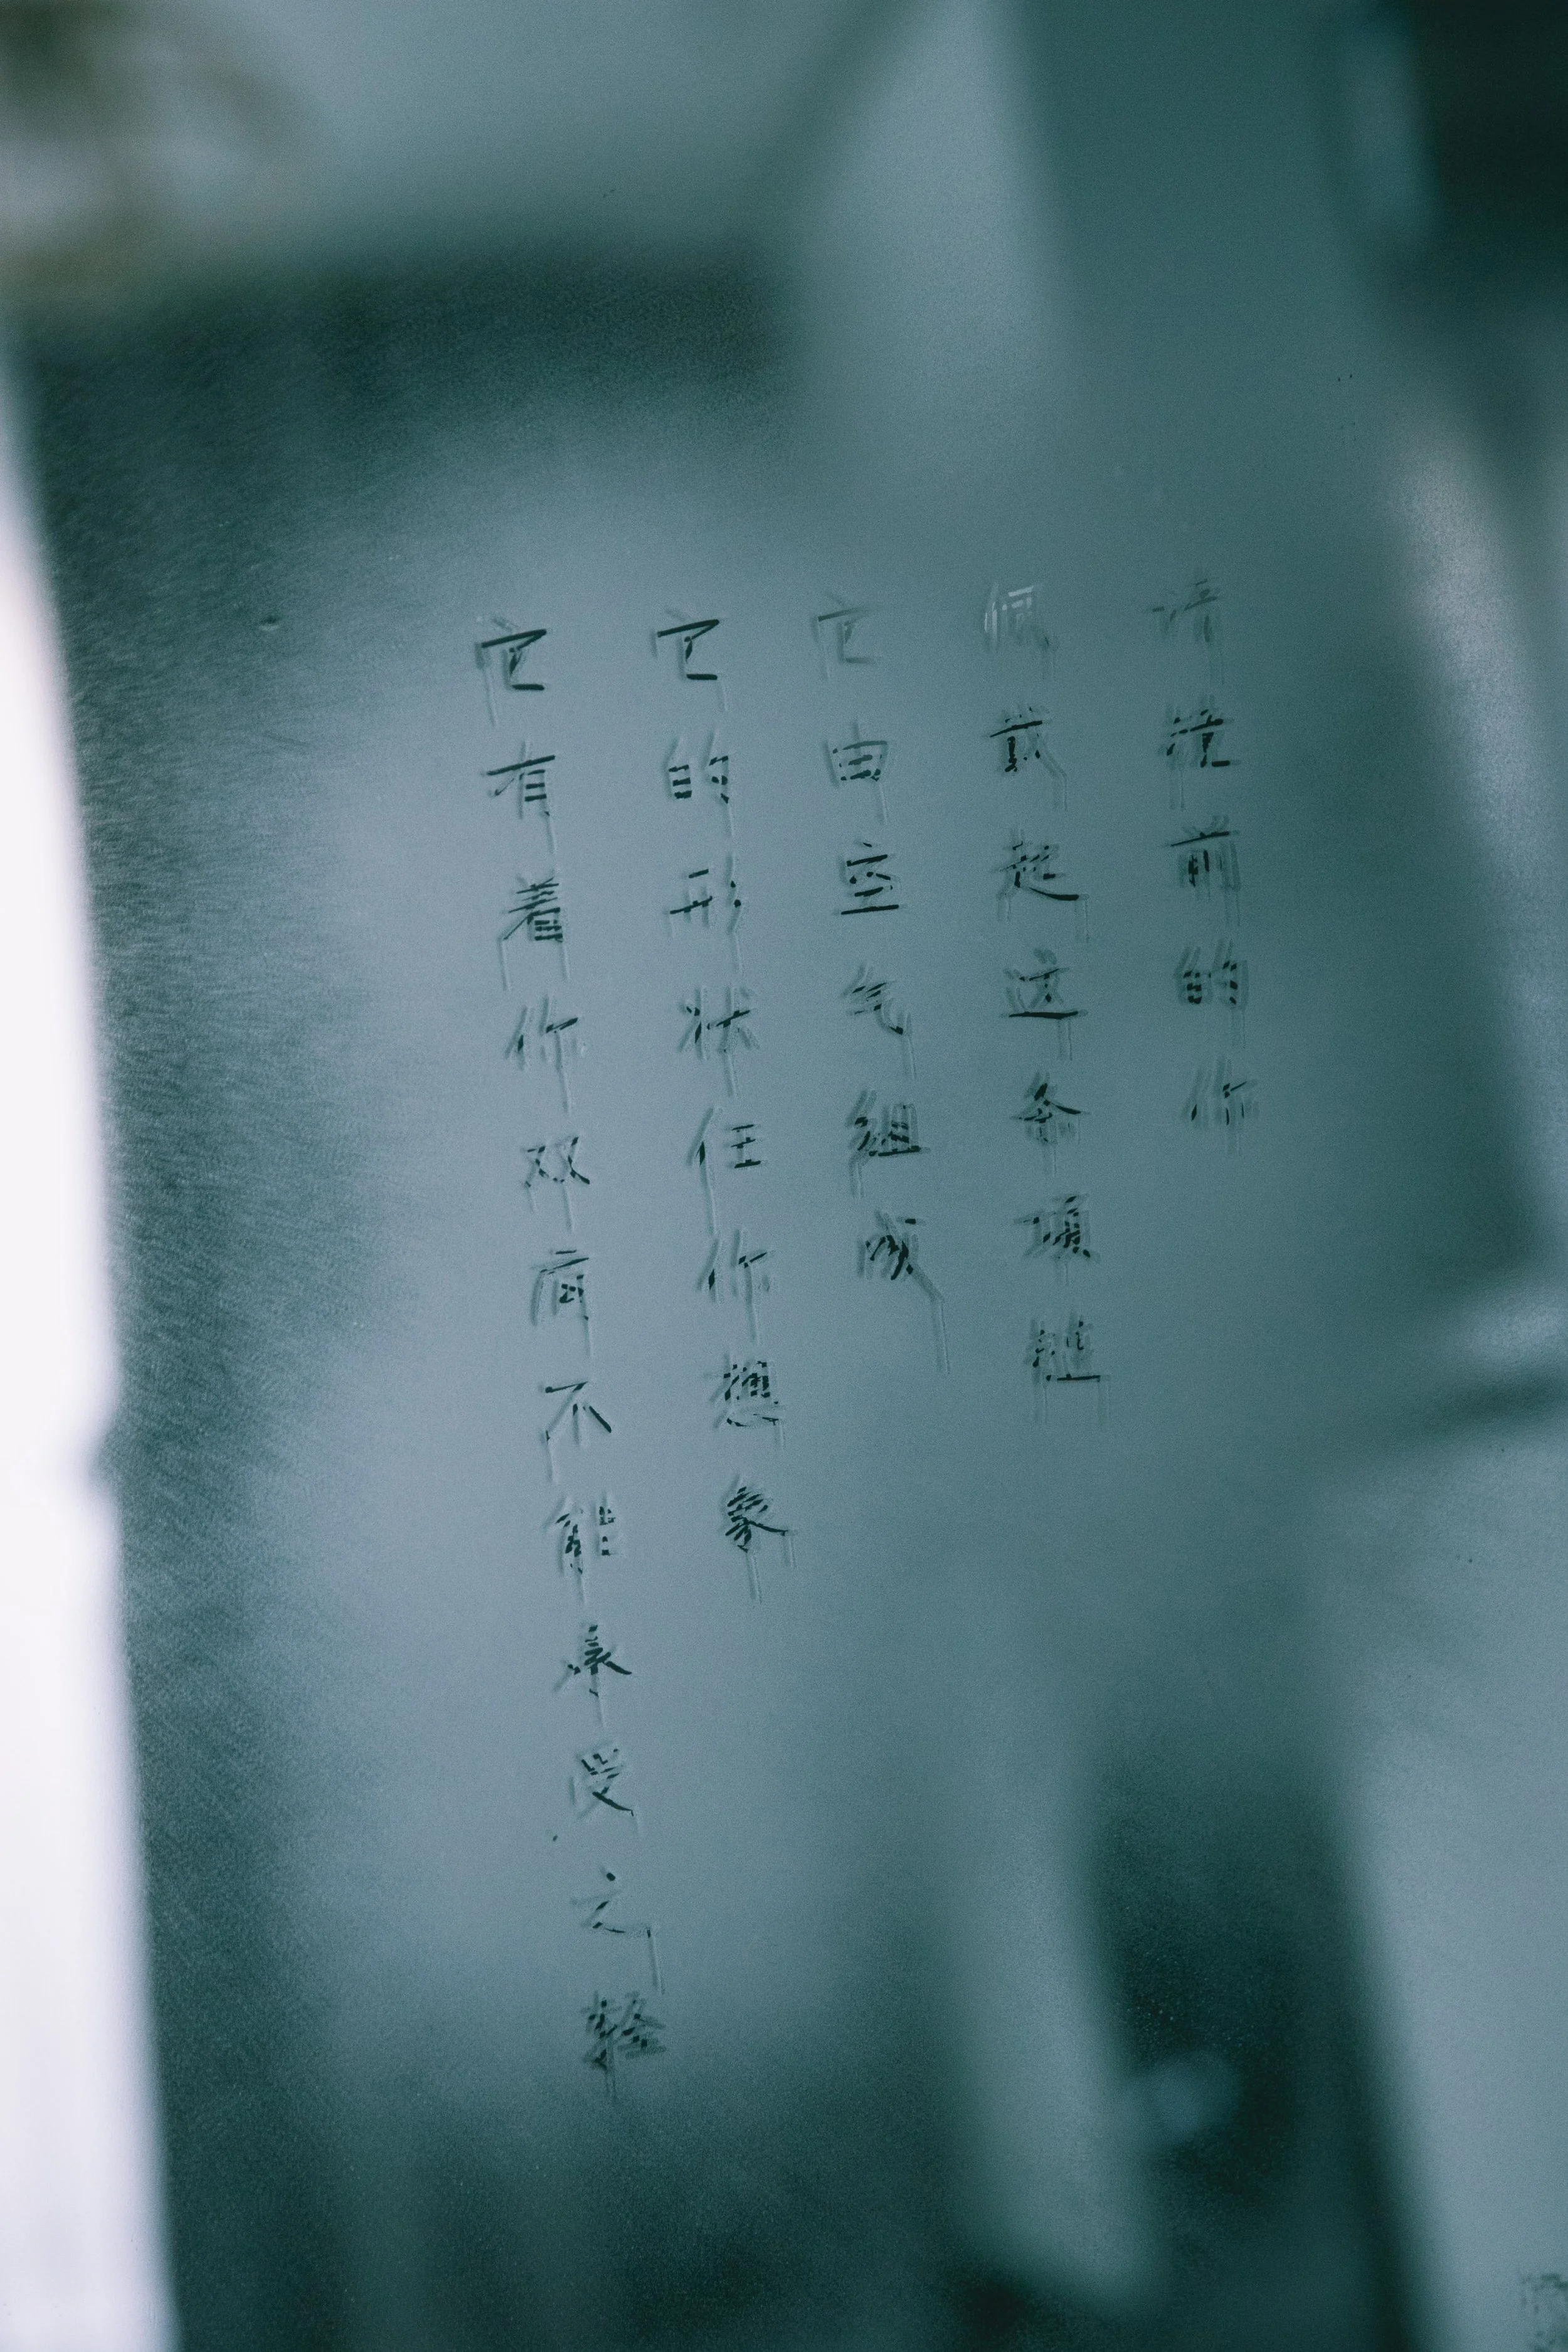 请镜前的你
佩戴起这条项链
它由空气组成
它的形状任你想象
它有着你双肩不能承受之轻